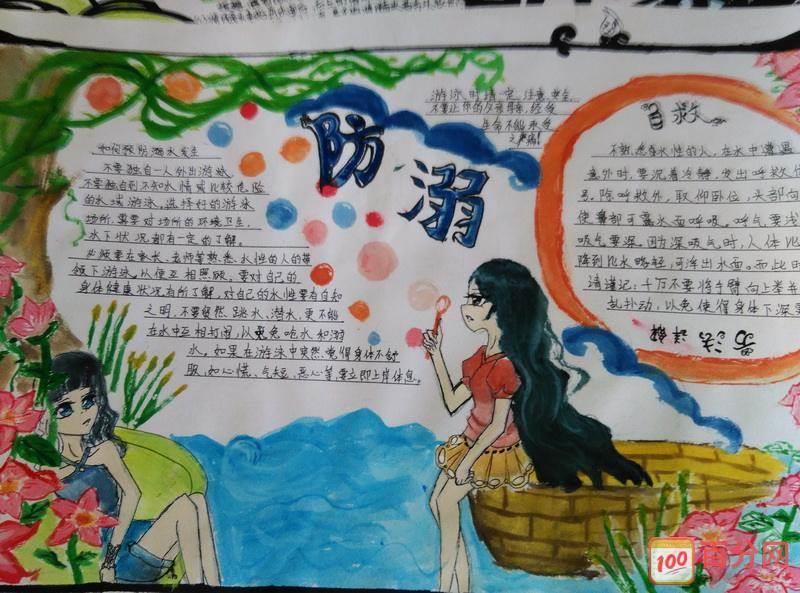 防溺
游泳时请一定注意安全,
不要让你的父母用余生
生命不能承受
之声痛!
如何预防溺水发生
不要独自一人外出游泳,
不要独自到不知水情或比较危险
的水域游泳。选择好的游泳
场所,需要对场所的环境卫生,
水下状况都有一定的了解。
必须要在家长、老师等熟悉水性的人的带
领下游泳。以便互相照顾,要对自己的
身体健康状况有所了解,对自己的水性要有自知
之明,不要贸然跳水、潜水,更不能
在水中互相打闹,以免呛水和溺
水。如果在游泳中突然觉得身体不舒
服,如心慌、气短、恶心等,要立即上岸休息。
自救
不熟悉水性的人,在水中遭遇
意外时,要沉着冷静,发出呼救信
号。除呼救外,取仰卧位,头部向
使鼻部可露水面呼吸。呼气要浅
吸气要深。因为深吸气时,人体比
降到比水略轻,可浮出水面。而此时
请谨记:十万不要将手臂向上举并
乱扑动,以免使得身体下沉更
百分网
100